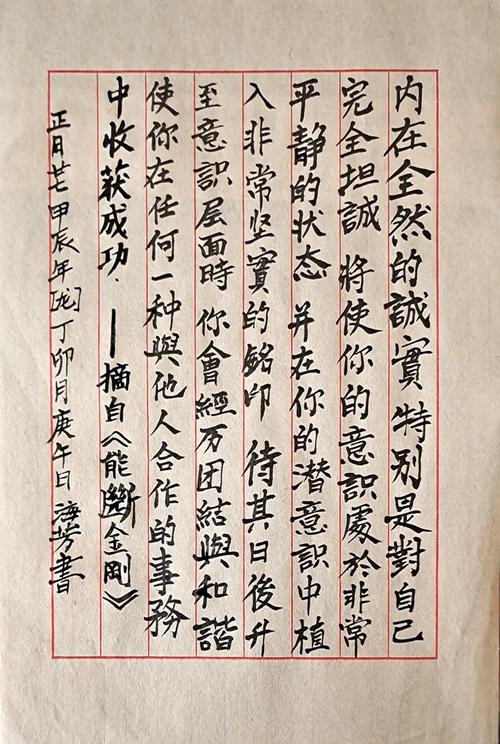 内在全然的誠實 特别是對自己
完全担誠 将使你的意識處於非常
平静的状态 并在你的潜意识中植
入非常坚實的銘印 待其日後升
至意识层面時 你會經历团結與和諧
使你在任何一种與他人合作的事務
中收获成功. ——摘自《能斷金剛》
正月廿七甲辰年[龙]丁卯月庚午日 海芳書